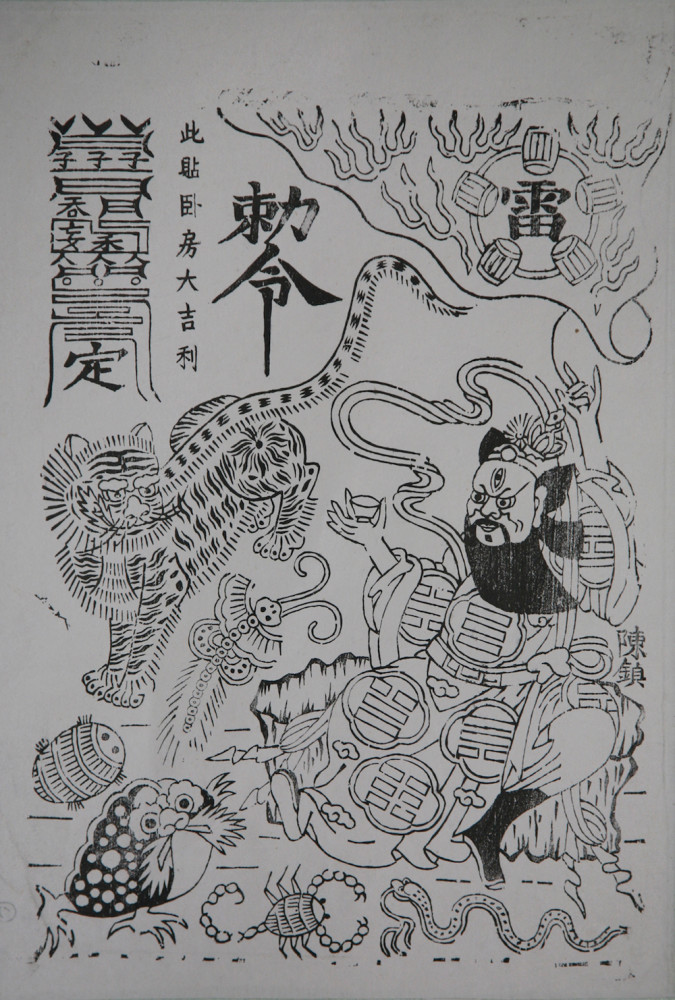 雷
勅令
此貼卧房大吉利
子子子
定
陳鎮